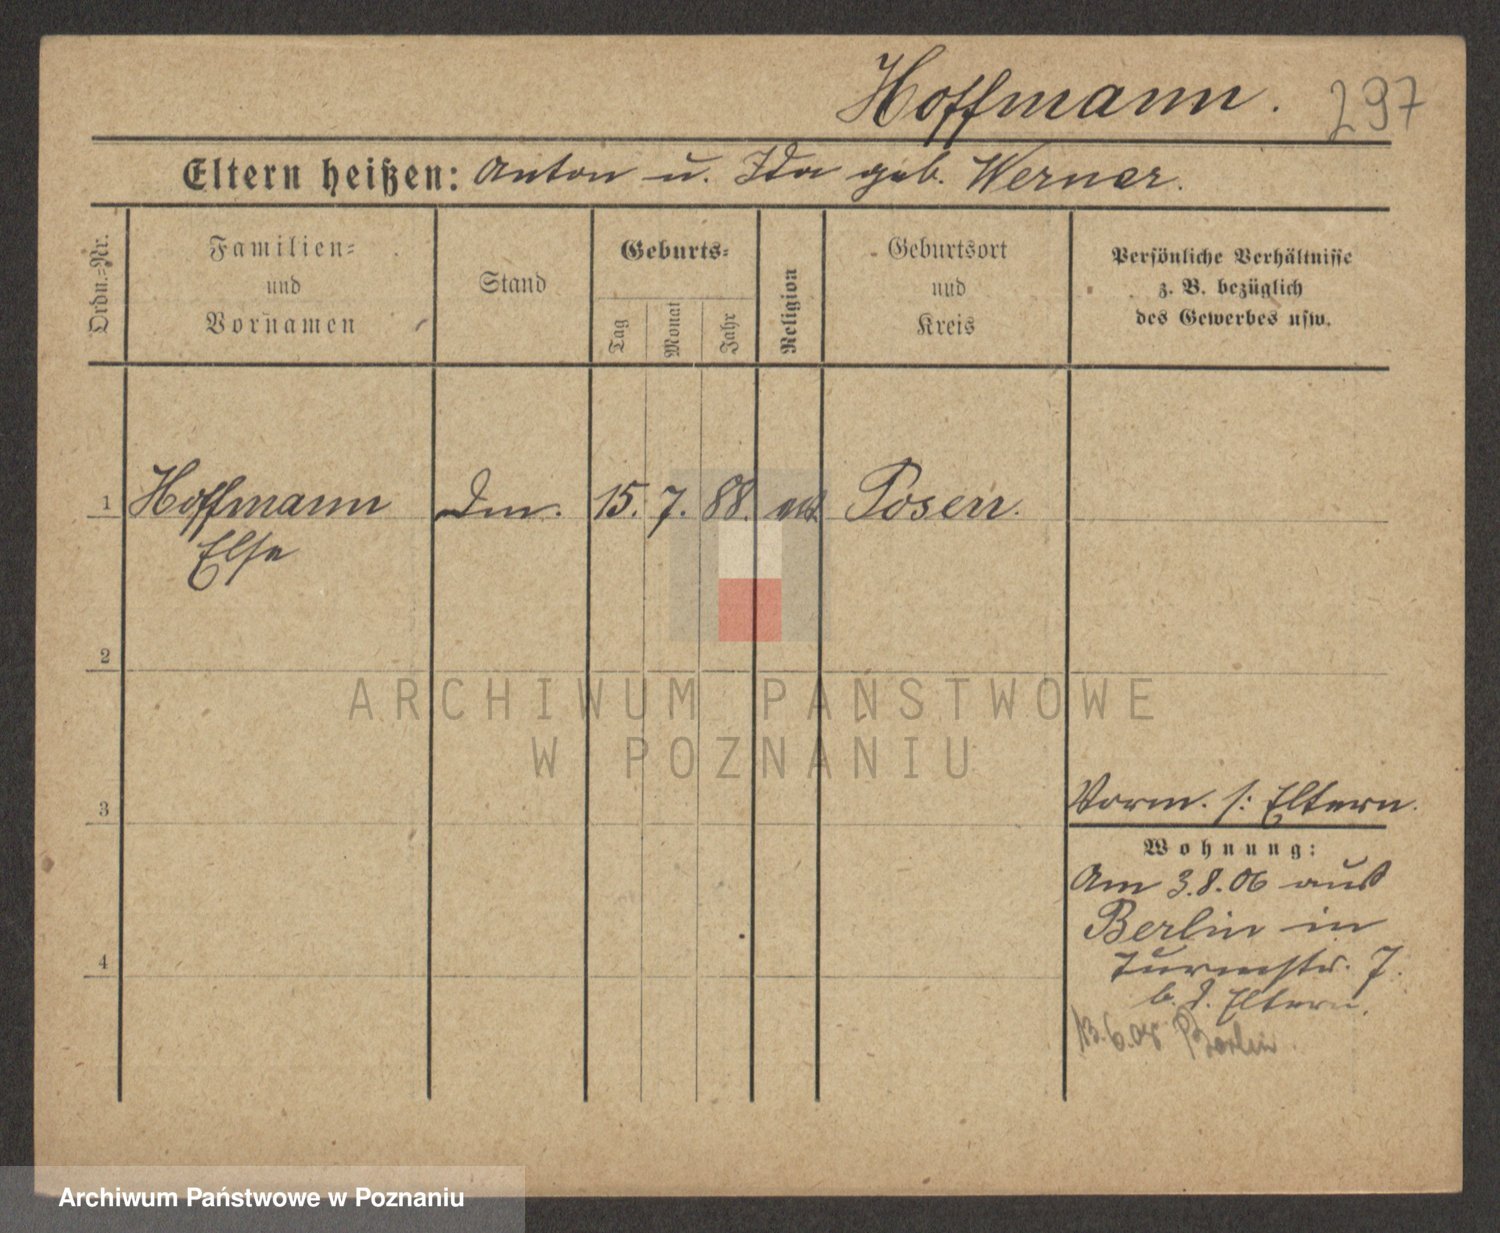 Hoffmann. 297
Eltern heißen: Anton u. Ida geb. Werner.
Ordn.=Nr.
Familien=
und
Vornamen
Stand
Geburts=
Tag
Monat
Jahr
Religion
Geburtsort
und
Kreis
Persönliche Verhältnisse
z. B. bezüglich
des Gewerbes usw.
1 Hoffmann 15. 7. 88. Posen.
Else
2
ARCHIWUM PAŃSTWOWE
W POZNANIU
3
Vorm. s: Eltern.
Wohnung:
Am 3.8.06 aus
Berlin in
4
Turmstr. 7.
b. d. Eltern.
13.6.08 Berlin
Archiwum Państwowe w Poznaniu